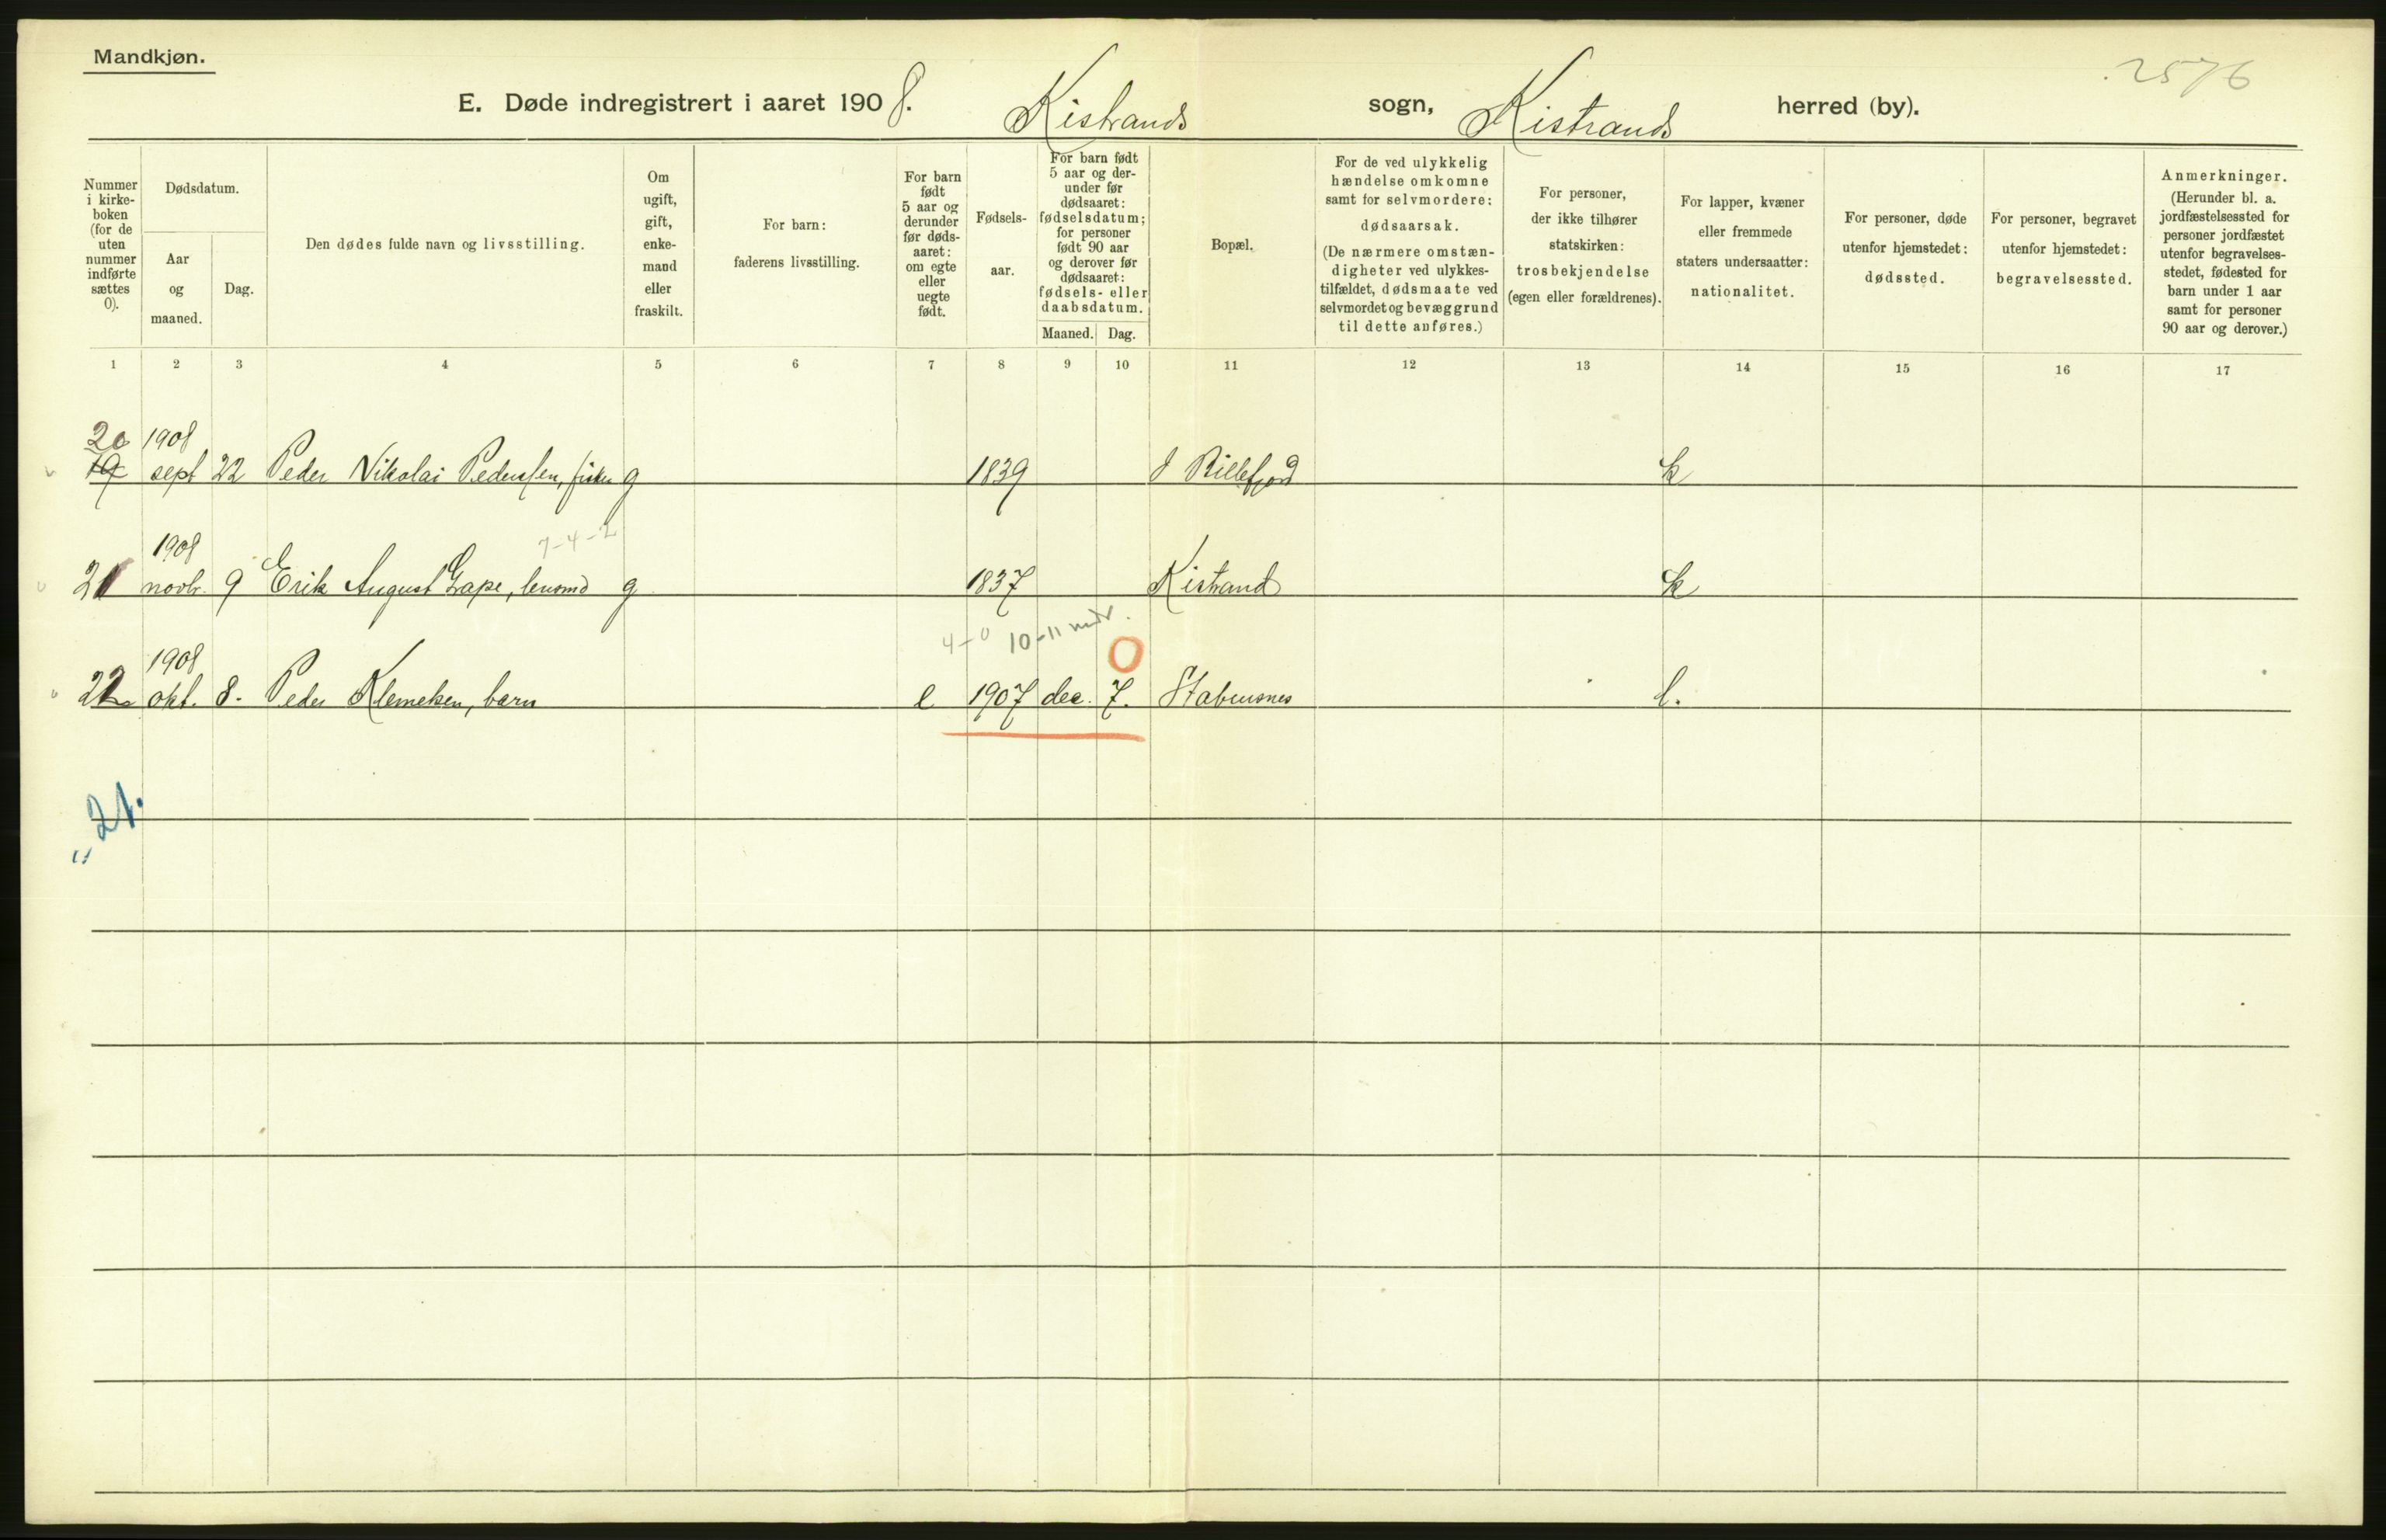 Mandkjøn.
2576
E. Døde indregistrert i aaret 1908. Kistrands sogn, Kistrands herred (by).
Nummer i kirkeboken (for de uten nummer indførte sættes 0).
Dødsdatum.
Aar og maaned.
Dag.
Den dødes fulde navn og livsstilling.
Om ugift, gift, enkemand eller fraskilt.
For barn: faderens livsstilling.
For barn født 5 aar og derunder før dødsaaret: om egte eller uegte født.
Fødselsaar.
For barn født 5 aar og derunder før dødsaaret: fødselsdatum; for personer født 90 aar og derover før dødsaaret: fødsels- eller daabsdatum.
Maaned. Dag.
Bopæl.
For de ved ulykkelig hændelse omkomne samt for selvmordere: dødsaarsak. (De nærmere omstændigheter ved ulykkestilfældet, dødsmaate ved selvmordet og bevæggrund til dette anføres.)
For personer, der ikke tilhører statskirken: trosbekjendelse (egen eller forældrenes).
For lapper, kvæner eller fremmede staters undersaatter: nationalitet.
For personer, døde utenfor hjemstedet: dødssted.
For personer, begravet utenfor hjemstedet: begravelsessted.
Anmerkninger. (Herunder bl. a. jordfæstelsessted for personer jordfæstet utenfor begravelsesstedet, fødested for barn under 1 aar samt for personer 90 aar og derover.)
1 2 3 4 5 6 7 8 9 10 11 12 13 14 15 16 17
20 1908
19 sept 22 Peder Nikolai Pedersen, fisker g 1839 I Billefjord k
1908 7-4-2
21 novbr. 9 Erik August Grape, lensmd g 1837 Kistrand k
4-0 10-11 mdr.
1908 0
22 okt. 8. Peder Klemetsen, barn e 1907 dec. 7. Stabursnes l.
"21.